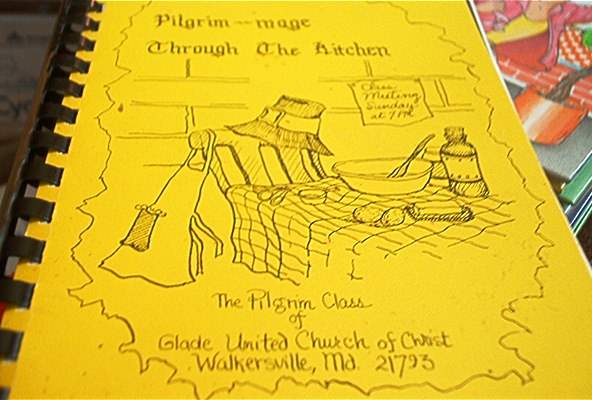 Pilgrim-mage
Through The Kitchen
Class
Meeting
Sunday
at 7 PM
The Pilgrim Class
of
Glade United Church of Christ
Walkersville, Md. 21793